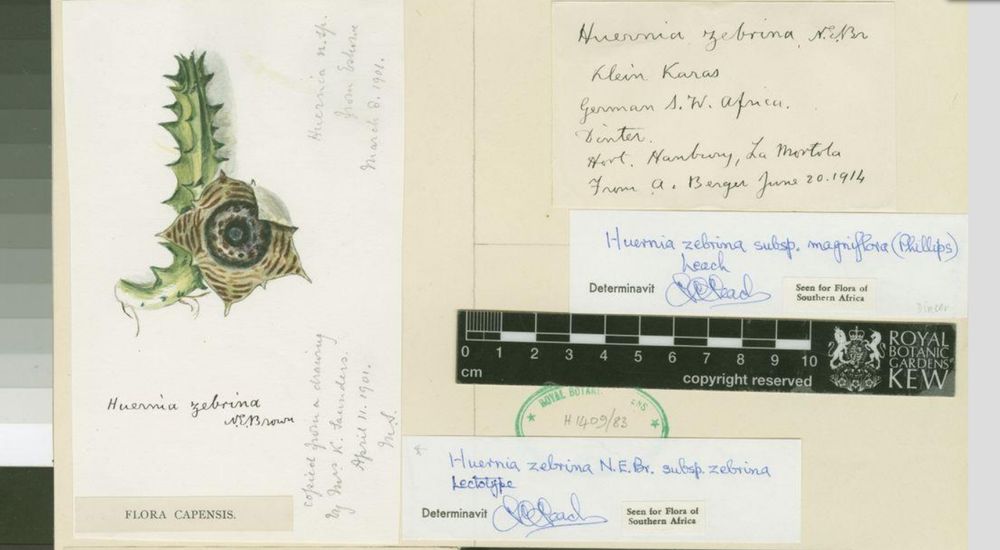 Huernia n. sp.
from Eshowe
March 8. 1901.
Huernia zebrina
N.E.Brown
copied from a drawing
by Mrs K. Saunders.
April 11. 1901.
M.S.
FLORA CAPENSIS.
Huernia zebrina, N.E.Br
Klein Karas
German S.W. Africa.
Dinter.
Hort. Hanbury, La Mortola
From A. Berger June 20.1914
Huernia zebrina subsp. magniflora (Phillips)
Leach
Determinavit
Seen for Flora of
Southern Africa
Dinter
0 1 2 3 4 5 6 7 8 9 10
cm
copyright reserved
ROYAL
BOTANIC
GARDENS
KEW
ROYAL BOTAN ENS
H1409/83
Huernia zebrina N.E.Br. subsp. zebrina
Lectotype
Determinavit
Seen for Flora of
Southern Africa